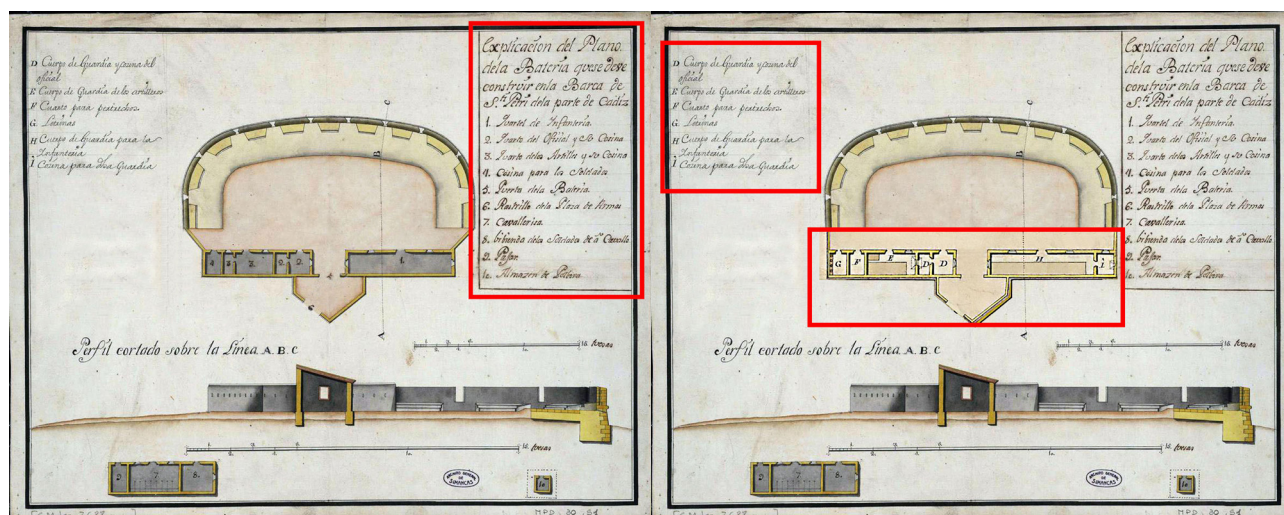 D Cuerpo de Guardia y cocina del
oficial
E Cuerpo de Guardia de los artilleros
F Cuarto para pertrechos.
G Letrinas
H Cuerpo de Guardia para la
Infanteria
I Cocina para dha Guardia
Explicacion del Plano
dela Bateria que se deve
construir en la Barca de
Sn. Petri dela parte de Cadiz
1. Quartel de Infanteria.
2. Quarto del Oficial y su Cocina
3. Quarto dela Artilla y su Cocina
4. Cocina para la Soldada
5. Puerta dela Bateria.
6. Rastrillo dela Plaza de Armas
7. Cavalleriza
8. bibienda dela Soldada de a Cavallo
9. Pajar
10. Almazen de Polvora
C
B
4
3
2
1
6
A
Perfil cortado sobre la Linea A. B. C
9
7
8
ARCHIVO GENERAL
DE
SIMANCAS
10
MPD. 30. 51
D Cuerpo de Guardia y cocina del
oficial
E Cuerpo de Guardia de los artilleros
F Cuarto para pertrechos.
G Letrinas
H Cuerpo de Guardia para la
Infanteria
I Cocina para dha Guardia
Explicacion del Plano
dela Bateria que se deve
construir en la Barca de
Sn. Petri dela parte de Cadiz
1. Quartel de Infanteria.
2. Quarto del Oficial y su Cocina
3. Quarto dela Artilla y su Cocina
4. Cocina para la Soldada
5. Puerta dela Bateria.
6. Rastrillo dela Plaza de Armas
7. Cavalleriza
8. bibienda dela Soldada de a Cavallo
9. Pajar
10. Almazen de Polvora
C
B
G F E D D H I
A
Perfil cortado sobre la Linea A. B. C
9
7
8
ARCHIVO GENERAL
DE
SIMANCAS
10
MPD. 30. 51